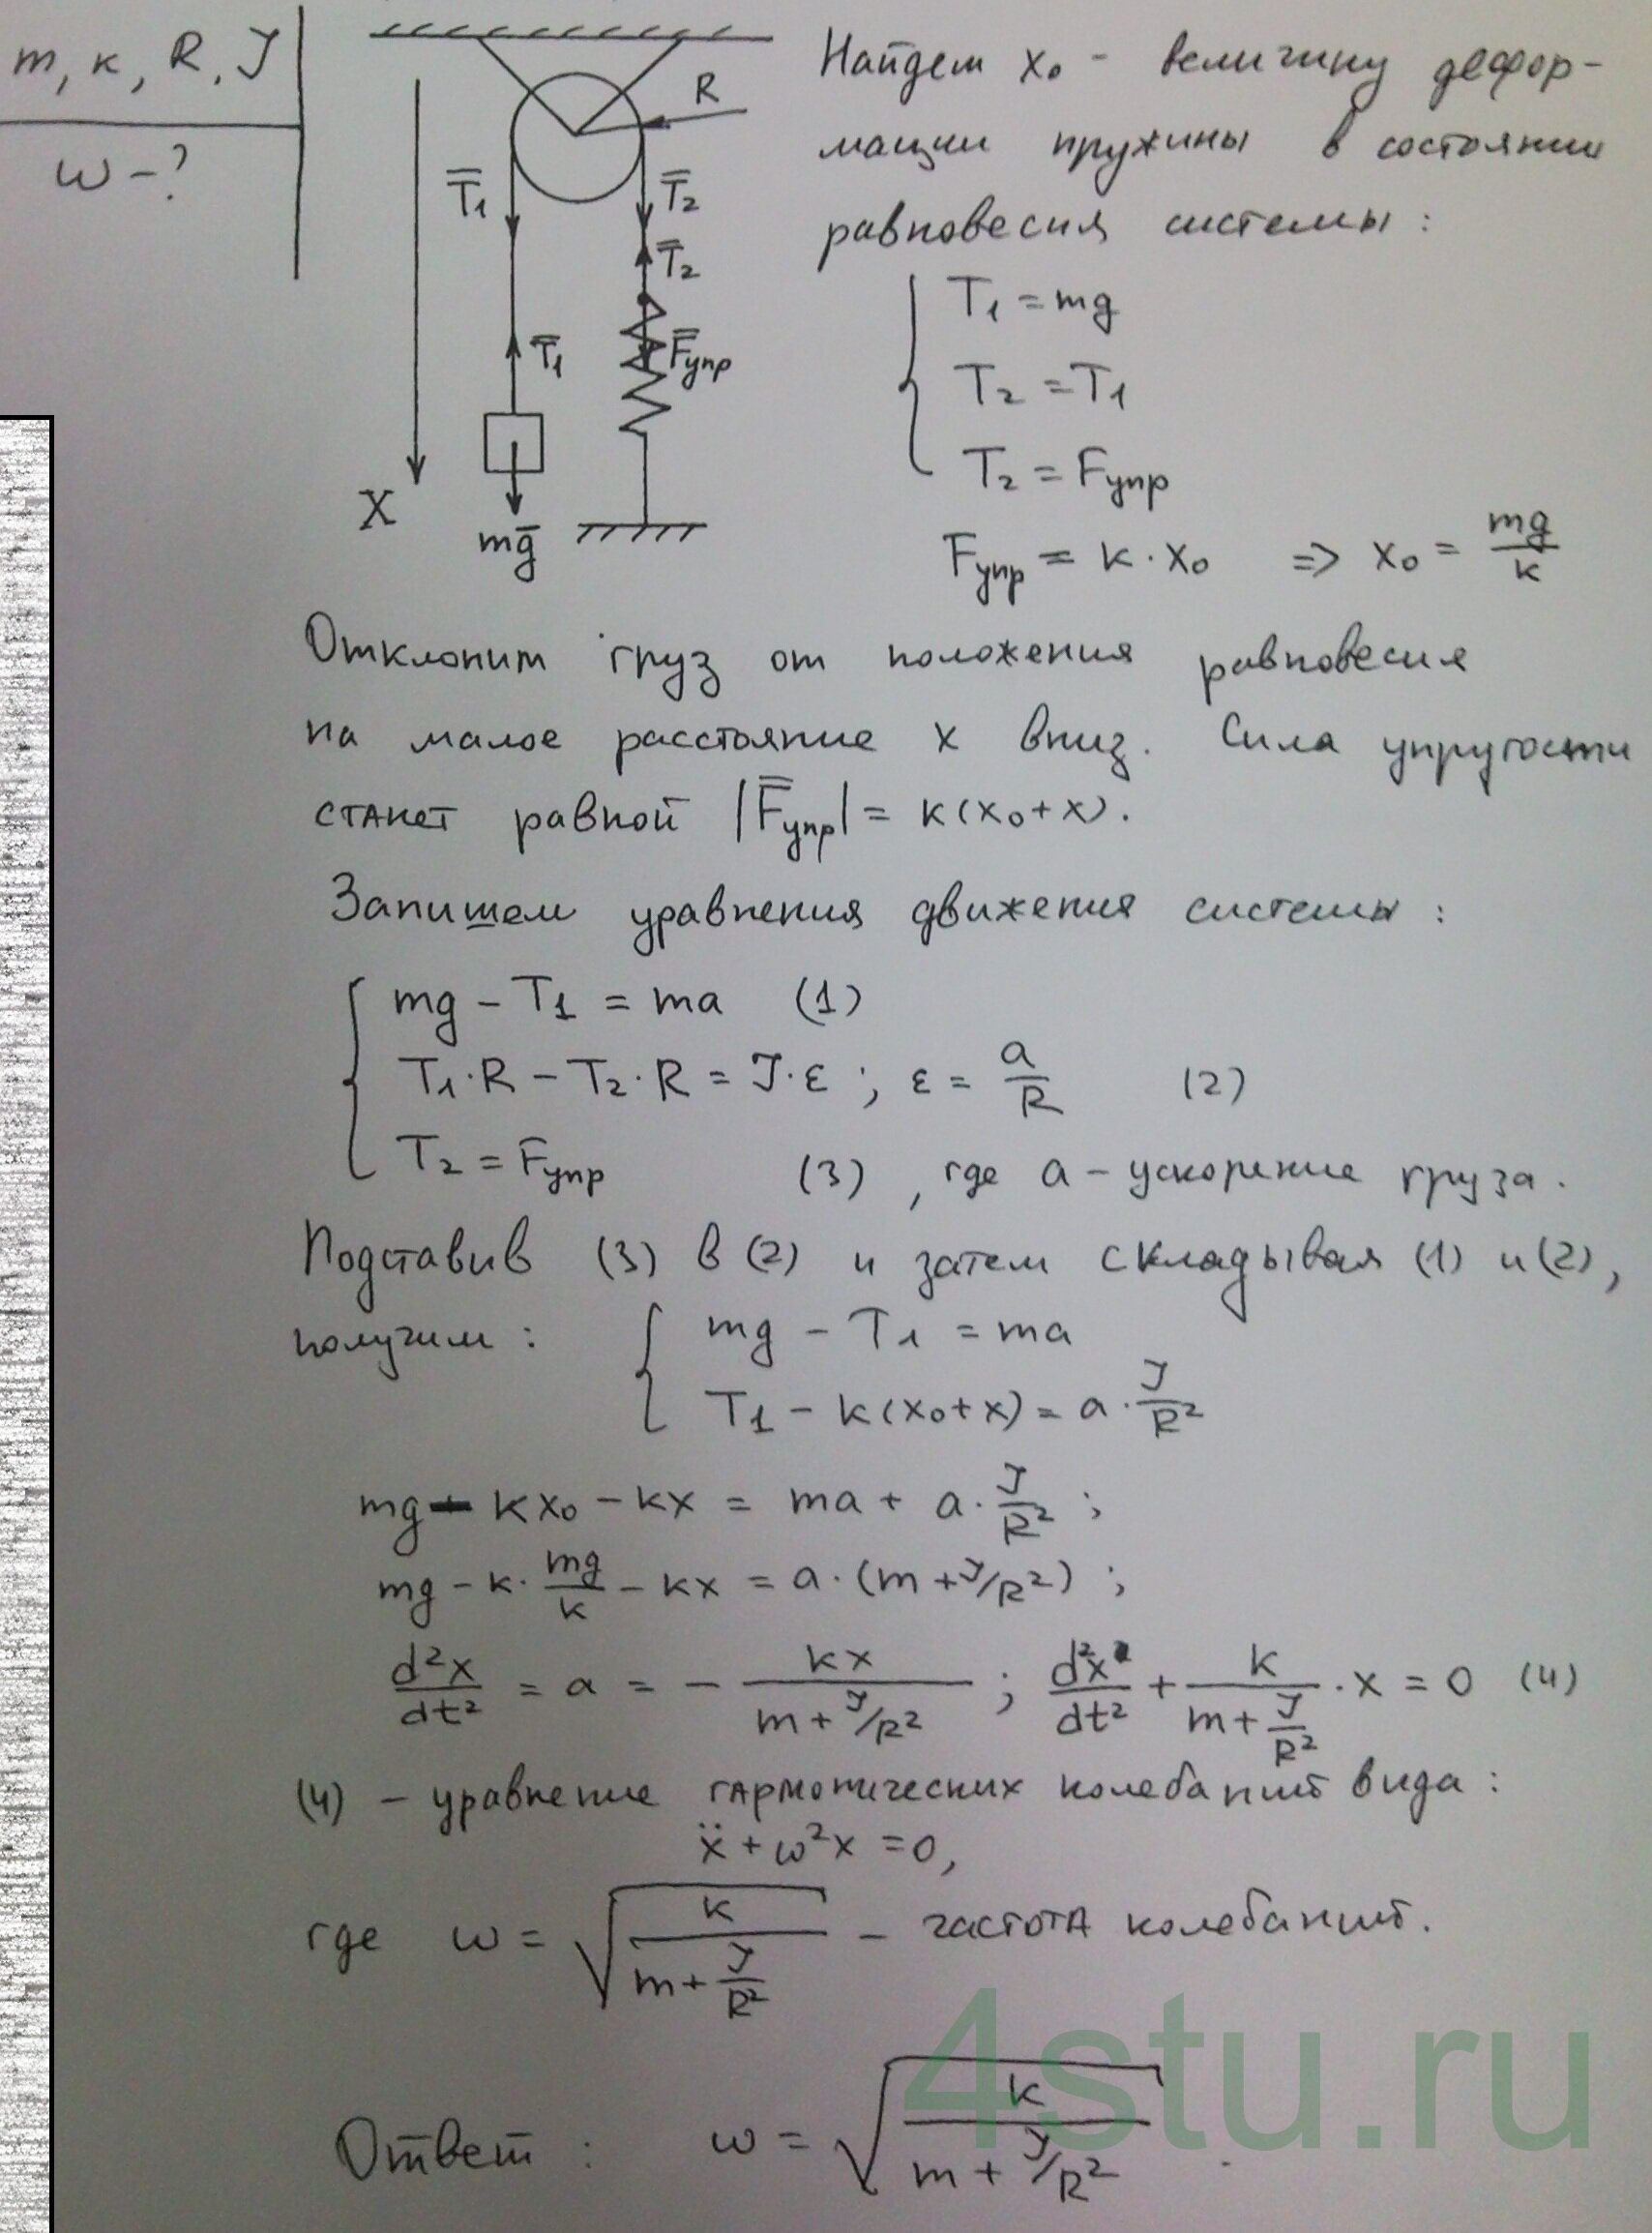 m, к, R, J
ω - ?
R
T̅₁
T̅₂
T̅₂
T̅₁
F̅упр
X
mg̅
Найдем x₀ - величину дефор-
мации пружины в состоянии
равновесия системы:
T₁ = mg
T₂ = T₁
T₂ = Fупр
Fупр = к · x₀ => x₀ = mg/к
Отклоним груз от положения равновесия
на малое расстояние x вниз. Сила упругости
станет равной |F̅упр| = к(x₀+x).
Запишем уравнения движения системы:
mg - T₁ = ma (1)
T₁·R - T₂·R = J·ε ; ε = a/R (2)
T₂ = Fупр (3), где a - ускорение груза.
Подставив (3) в (2) и затем складывая (1) и (2),
получим: mg - T₁ = ma
T₁ - к(x₀+x) = a · J/R²
mg - кx₀ - кx = ma + a · J/R² ;
mg - к · mg/к - кx = a · (m + J/R²) ;
d²x/dt² = a = - кx/(m + J/R²) ; d²x/dt² + к/(m + J/R²) · x = 0 (4)
(4) - уравнение гармонических колебаний вида:
ẍ + ω²x = 0,
где ω = √(к/(m + J/R²)) - частота колебаний.
Ответ: ω = √(к/(m + J/R²)) .
4stu.ru